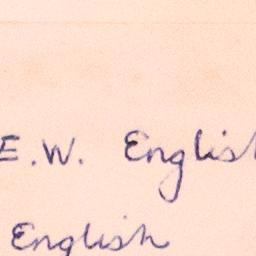 E.W. English
English